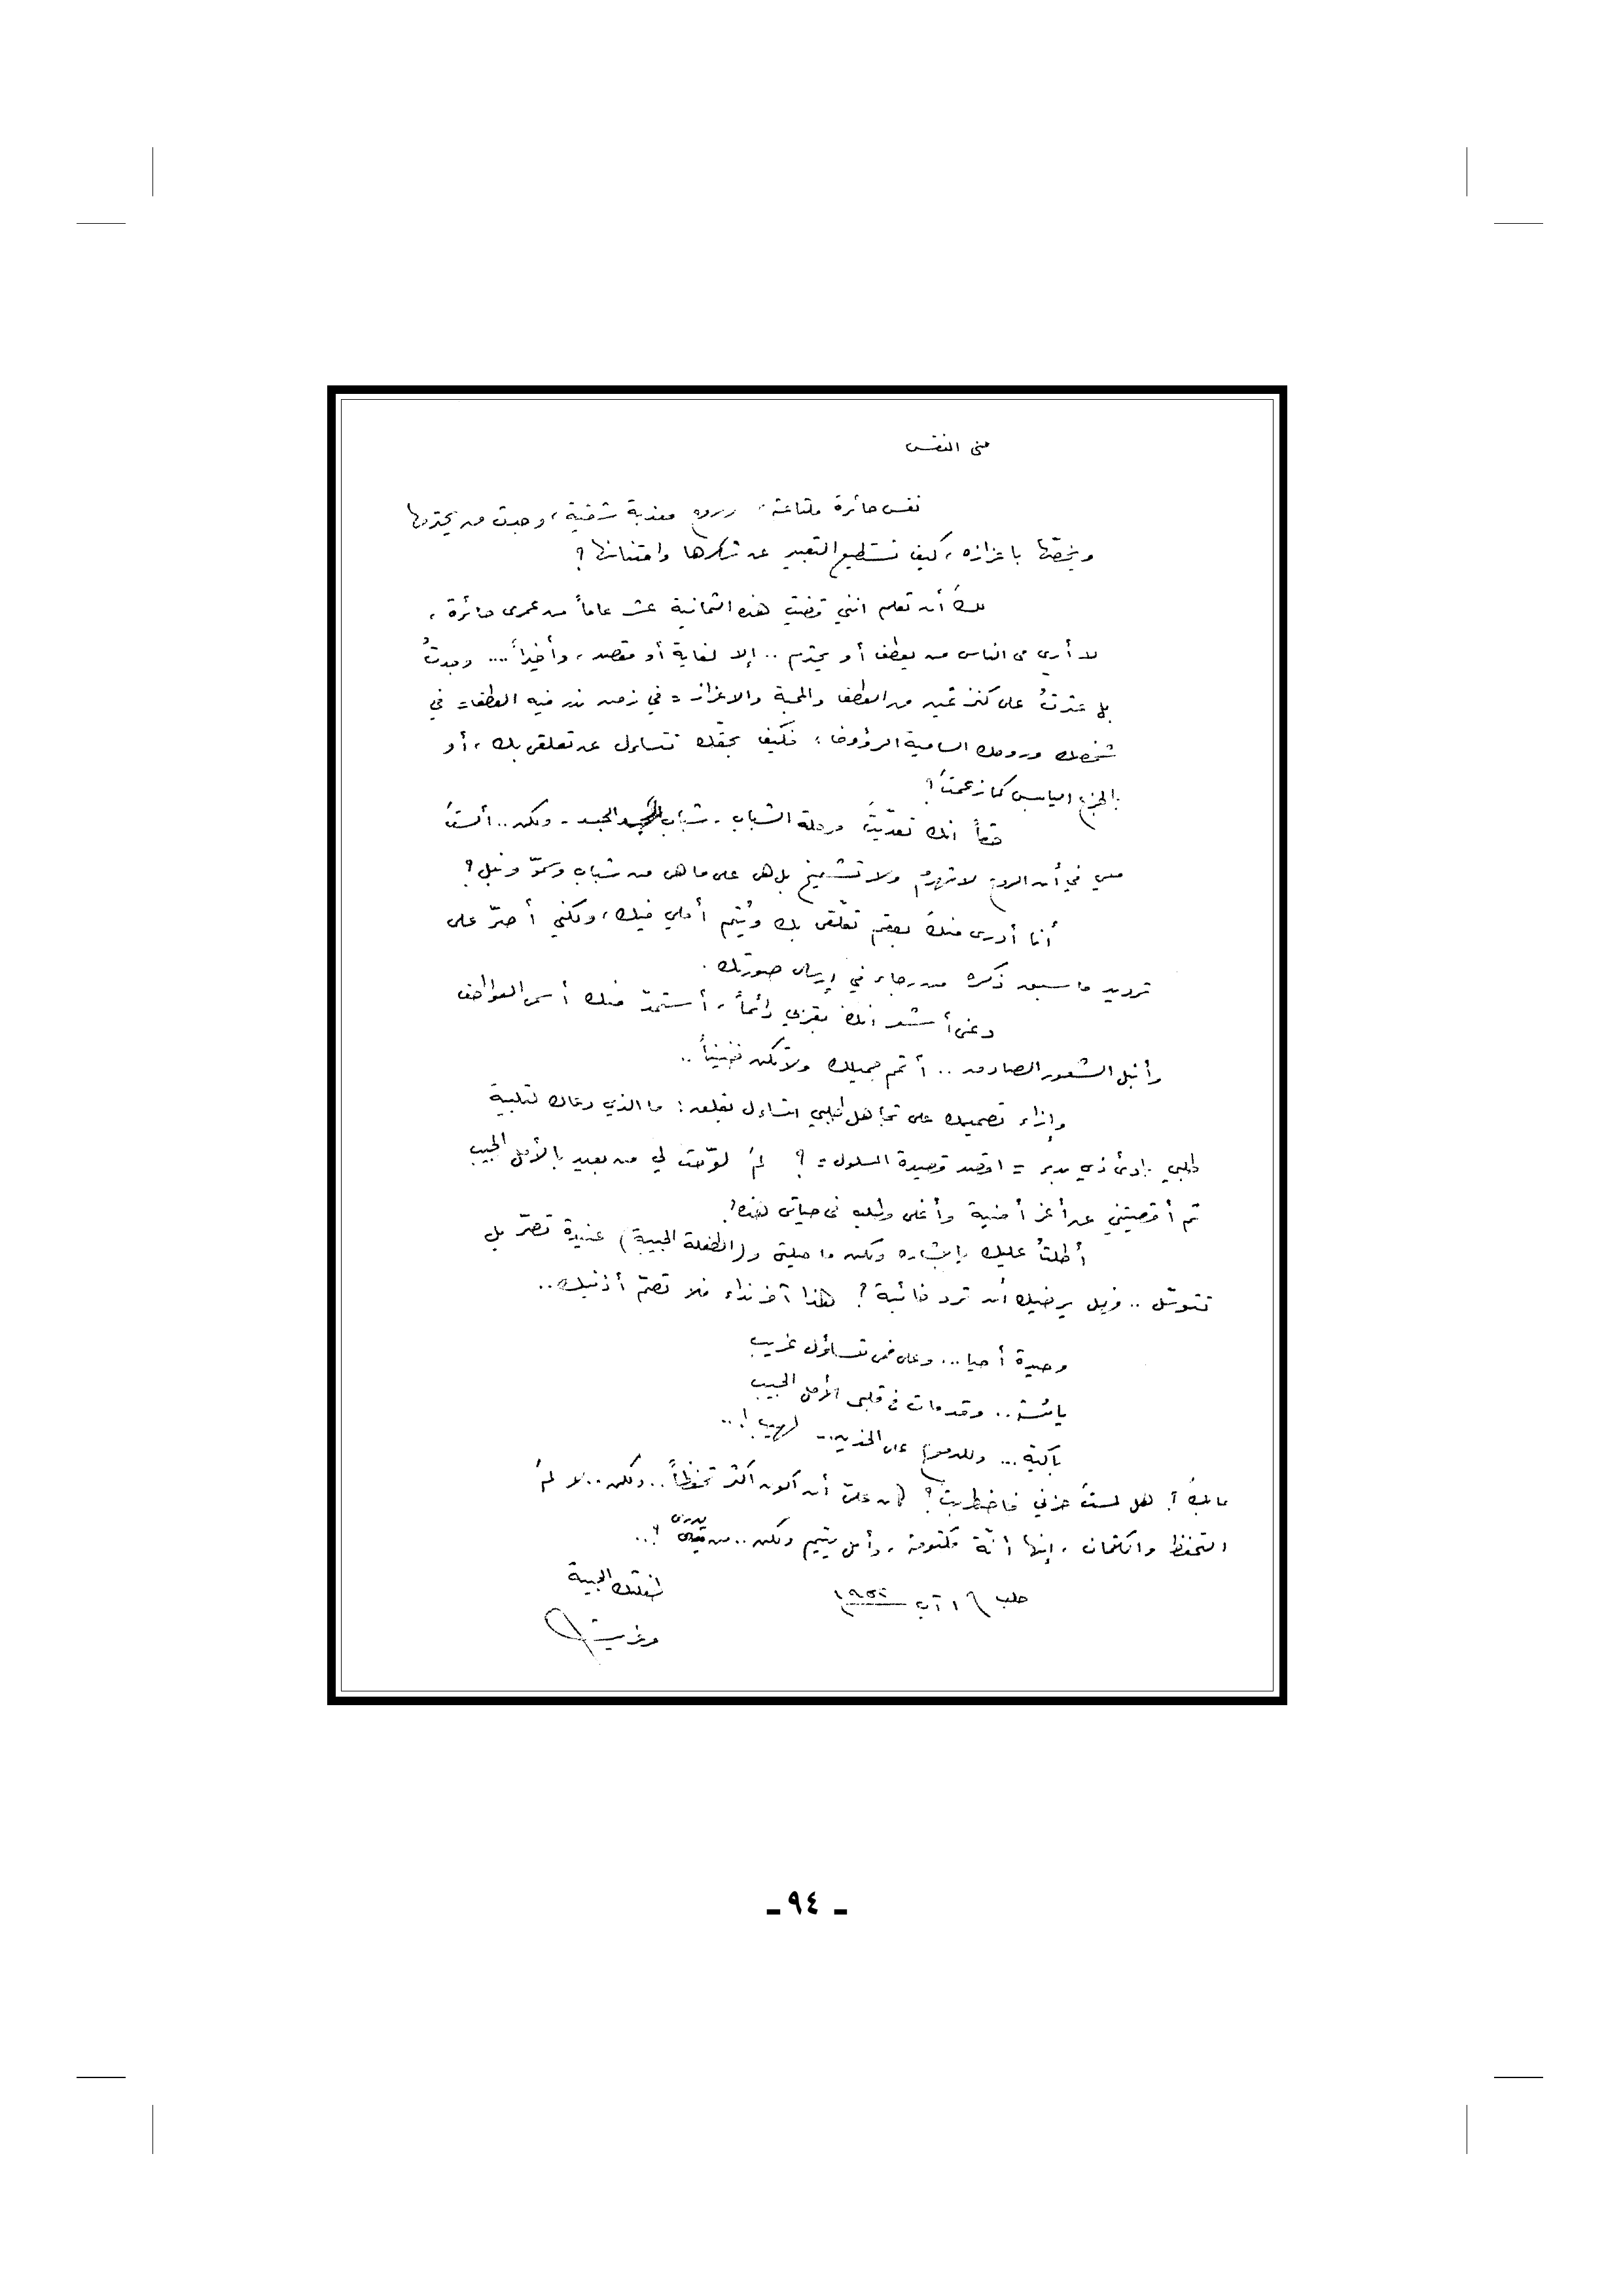 منى النفس
نفس حائرة ملتاعة، وروح معذبة شقية، وجدت من يحترمها
ويخصّها باعزازه، كيف تستطيع التعبير عن شكرها وامتنانها؟
لكَ أن تعلم انني قضيت هذه الثمانية عشر عاماً من عمري حائرة،
لا أرى في الناس من يعطف أو يحترم .. إلا لغاية أو مقصد، وأخيراً .... وجدتُ
بل عثرتُ على كنز ثمين من العطف والمحبة والاعزاز = في زمن ندر فيه العطف = في
شخصك وروحك السامية الرؤوف؛ فكيف بحقّك تتساءل عن تعلقي بك، أو
بالجزع اليابس كما زعمتَ؟
حقاً انك تعدّيتَ مرحلة الشباب - شباب الجسد - ولكن .. ألستَ
معي في أن الروح لا تهرمُ ولا تشيخ بل هي على ما هي من شباب وسموّ ونبل؟
أنا أدرى منكَ بعقم تعلّقي بك ويُتم أملي فيك، ولكني أصرّ على
ترديد ما سبق ذكره من رجاء في إرسال صورتك.
دعني أشعر انك بقربي دائماً، أستمدّ منك أسمى العواطف
وأنبل الشعور الصادق .. أتمم جميلك ولا تكن ضنيناً ..
وإزاء تصميمك على تجاهل طلبي اتساءل بقلق: ما الذي دعاك لتلبية
طلبي بادئ ذي بدء = اقصد قصيدة المسلول = ؟ لمَ لوّحت لي من بعيد بالأمل الحبيب
ثم أقصيتني عن أعز أمنية وأغلى مطلب في حياتي هذه؟
أطلتُ عليك يا بشاره ولكن ما حيلتي و(الطفلة الحبيبة) عنيدة تصرّ بل
تتوسّل .. فهل يرضيك أن ترد خائبة؟ هذا آخر نداء فلا تصمّ أذنيك..
وحيدة أحيا ... وعلى فمي تساؤل غريب
يائسة .. وقد مات في قلبي الأمل الحبيب
باكية ... وللدموع على الخدين .. لهيب! ..
مابكَ؟ هل لمستَ حزني فاضطربت؟ كان عليّ أن أكون أكثر تحفظاً .. ولكن .. لا لمَ
التحفظ والكتمان، إنها أنّة مكتومة، وأمل يتيم ولكن .. من يدري ؟! ..
حلب ١٦ آب
طفلتك الحبيبة